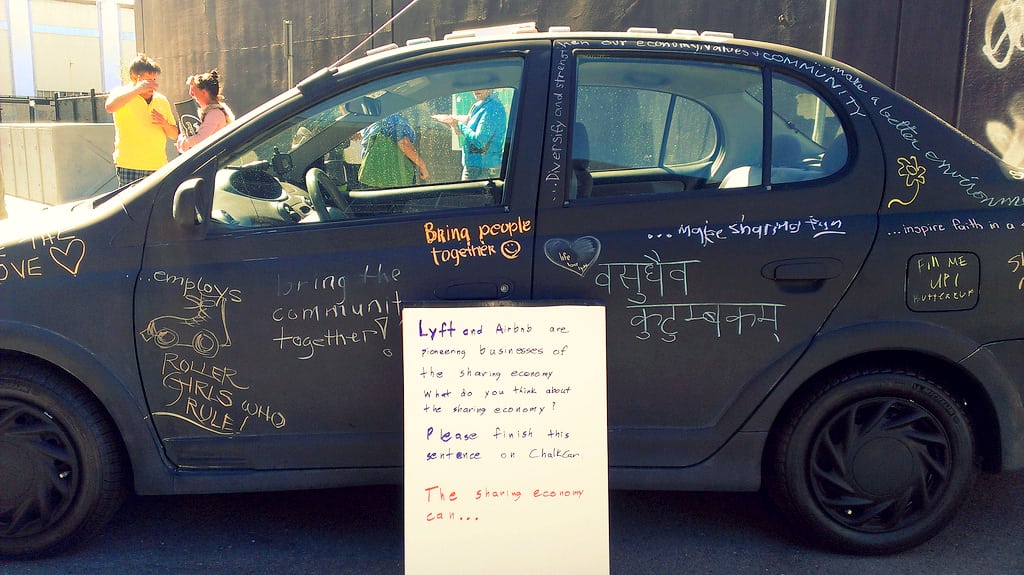 ...Diversify and strengthen our economy, values & COMMUNITY
...make a better environme
Bring people
together
...make sharing fun
...inspire faith in a
THE
OVE
...employs
ROLLER
GIRLS WHO
RULE!
bring the
communit
together!
life
वसुधैव
कुटुम्बकम्
FILL ME
UP!
BUTTERCUP
Lyft and Airbnb are
pioneering businesses of
the sharing economy
What do you think about
the sharing economy?
Please finish this
sentence on ChalkCar
The sharing economy
can...